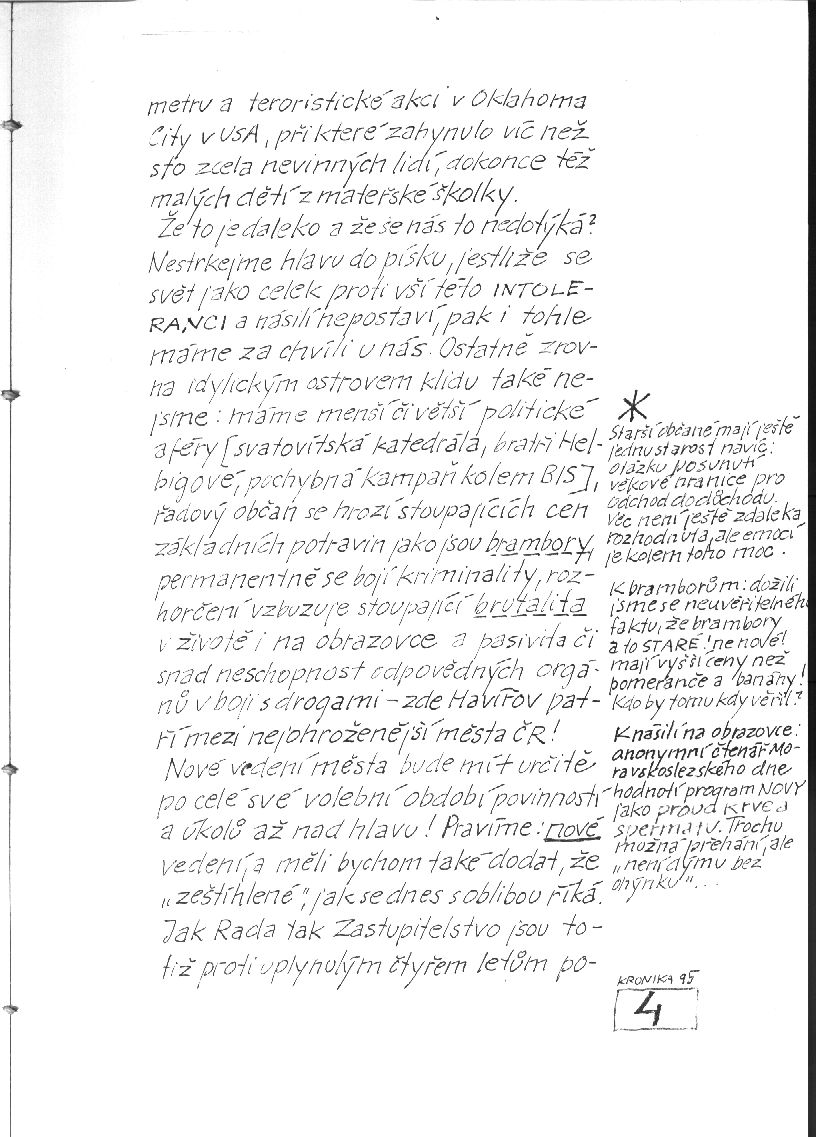 metru a teroristické akci v Oklahoma
City v USA, při které zahynulo víc než
sto zcela nevinných lidí, dokonce též
malých dětí z mateřské školky.
Že to je daleko a že se nás to nedotýká?
Nestrkejme hlavu do písku, jestliže se
svět jako celek proti vší této INTOLE-
RANCI a násilí nepostaví, pak i tohle
máme za chvíli u nás. Ostatně zrov-
na idylickým ostrovem klidu také ne-
jsme: máme menší či větší politické
aféry [svatovítská katedrála, bratři Hel-
bigové, pochybná kampaň kolem BIS],
řadový občan se hrozí stoupajících cen
základních potravin jako jsou brambory,
permanentně se bojí kriminality, roz-
horčení vzbuzuje stoupající brutalita
v životě i na obrazovce a pasivita či
snad neschopnost odpovědných orgá-
nů v boji s drogami - zde Havířov pat-
ří mezi nejohroženější města ČR!
Nové vedení města bude mít určitě
po celé své volební období povinností
a úkolů až nad hlavu! Pravíme: nové
vedení, a měli bychom také dodat, že
„zeštíhlené", jak se dnes s oblibou říká.
Jak Rada tak Zastupitelstvo jsou to-
tiž proti uplynulým čtyřem letům po-
*
Starší občané mají ještě
jednu starost navíc:
otázku posunutí
věkové hranice pro
odchod do důchodu.
Věc není ještě zdaleka
rozhodnuta, ale emocí
je kolem toho moc.
K bramborům: dožili
jsme se neuvěřitelného
faktu, že brambory
a to STARÉ! ne nové!
mají vyšší ceny než
pomeranče a banány!
Kdo by tomu kdy věřil?
K násilí na obrazovce:
anonymní čtenář Mo-
ravskoslezského dne
hodnotí program NOVY
jako proud krve a
spermatu. Trochu
možná přehání, ale
„není dýmu bez
ohýnku"...
KRONIKA 95
4